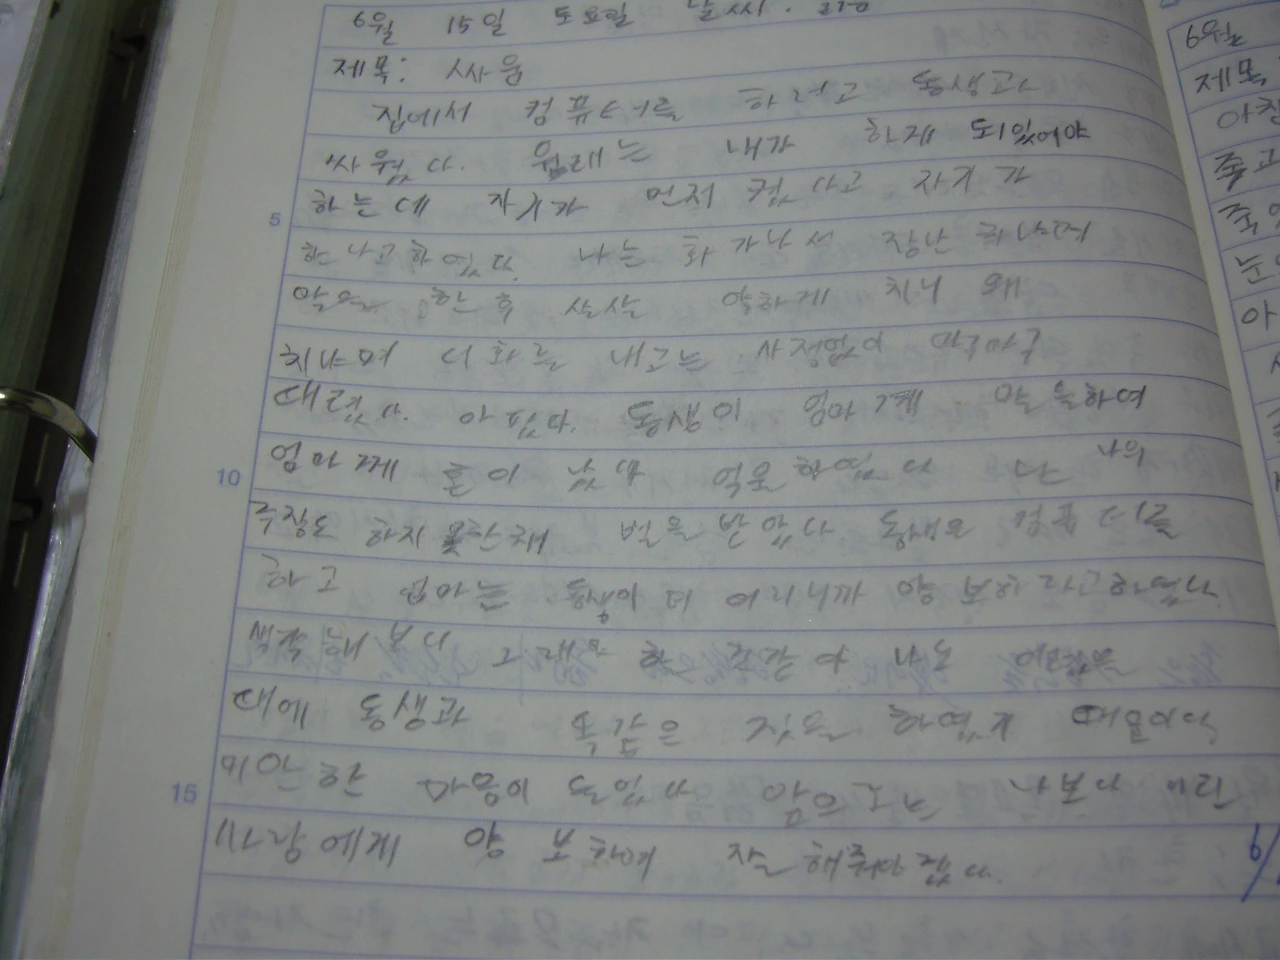 6월 15일 토요일 날씨: 맑음
제목: 싸움
집에서 컴퓨터를 하려고 동생과
싸웠다. 원래는 내가 하게 되있어야
하는데 자기가 먼저 켰다고 자기가
한다고 하였다. 나는 화가나서 장난치냐며
약올 한후 살살 약하게 치니 왜
치냐며 더 화를 내고는 사정없이 마구마구
때렸다. 아팠다. 동생이 엄마께 말을하여
엄마께 혼이 났다 억울하였다 난 나의
주장도 하지 못한채 벌을 받았다 동생은 컴퓨터를
하고 엄마는 동생이 더 어리니까 양보하라고하였다.
생각해보니 그래야 할 것같아 나도 어렸을
때에 동생과 똑같은 짓을 하였기 때문이다
미안한 마음이 들었다 앞으로는 나보다 어린
사람에게 양보하며 잘해줘야겠다.
5
10
15
6월
제목
아침